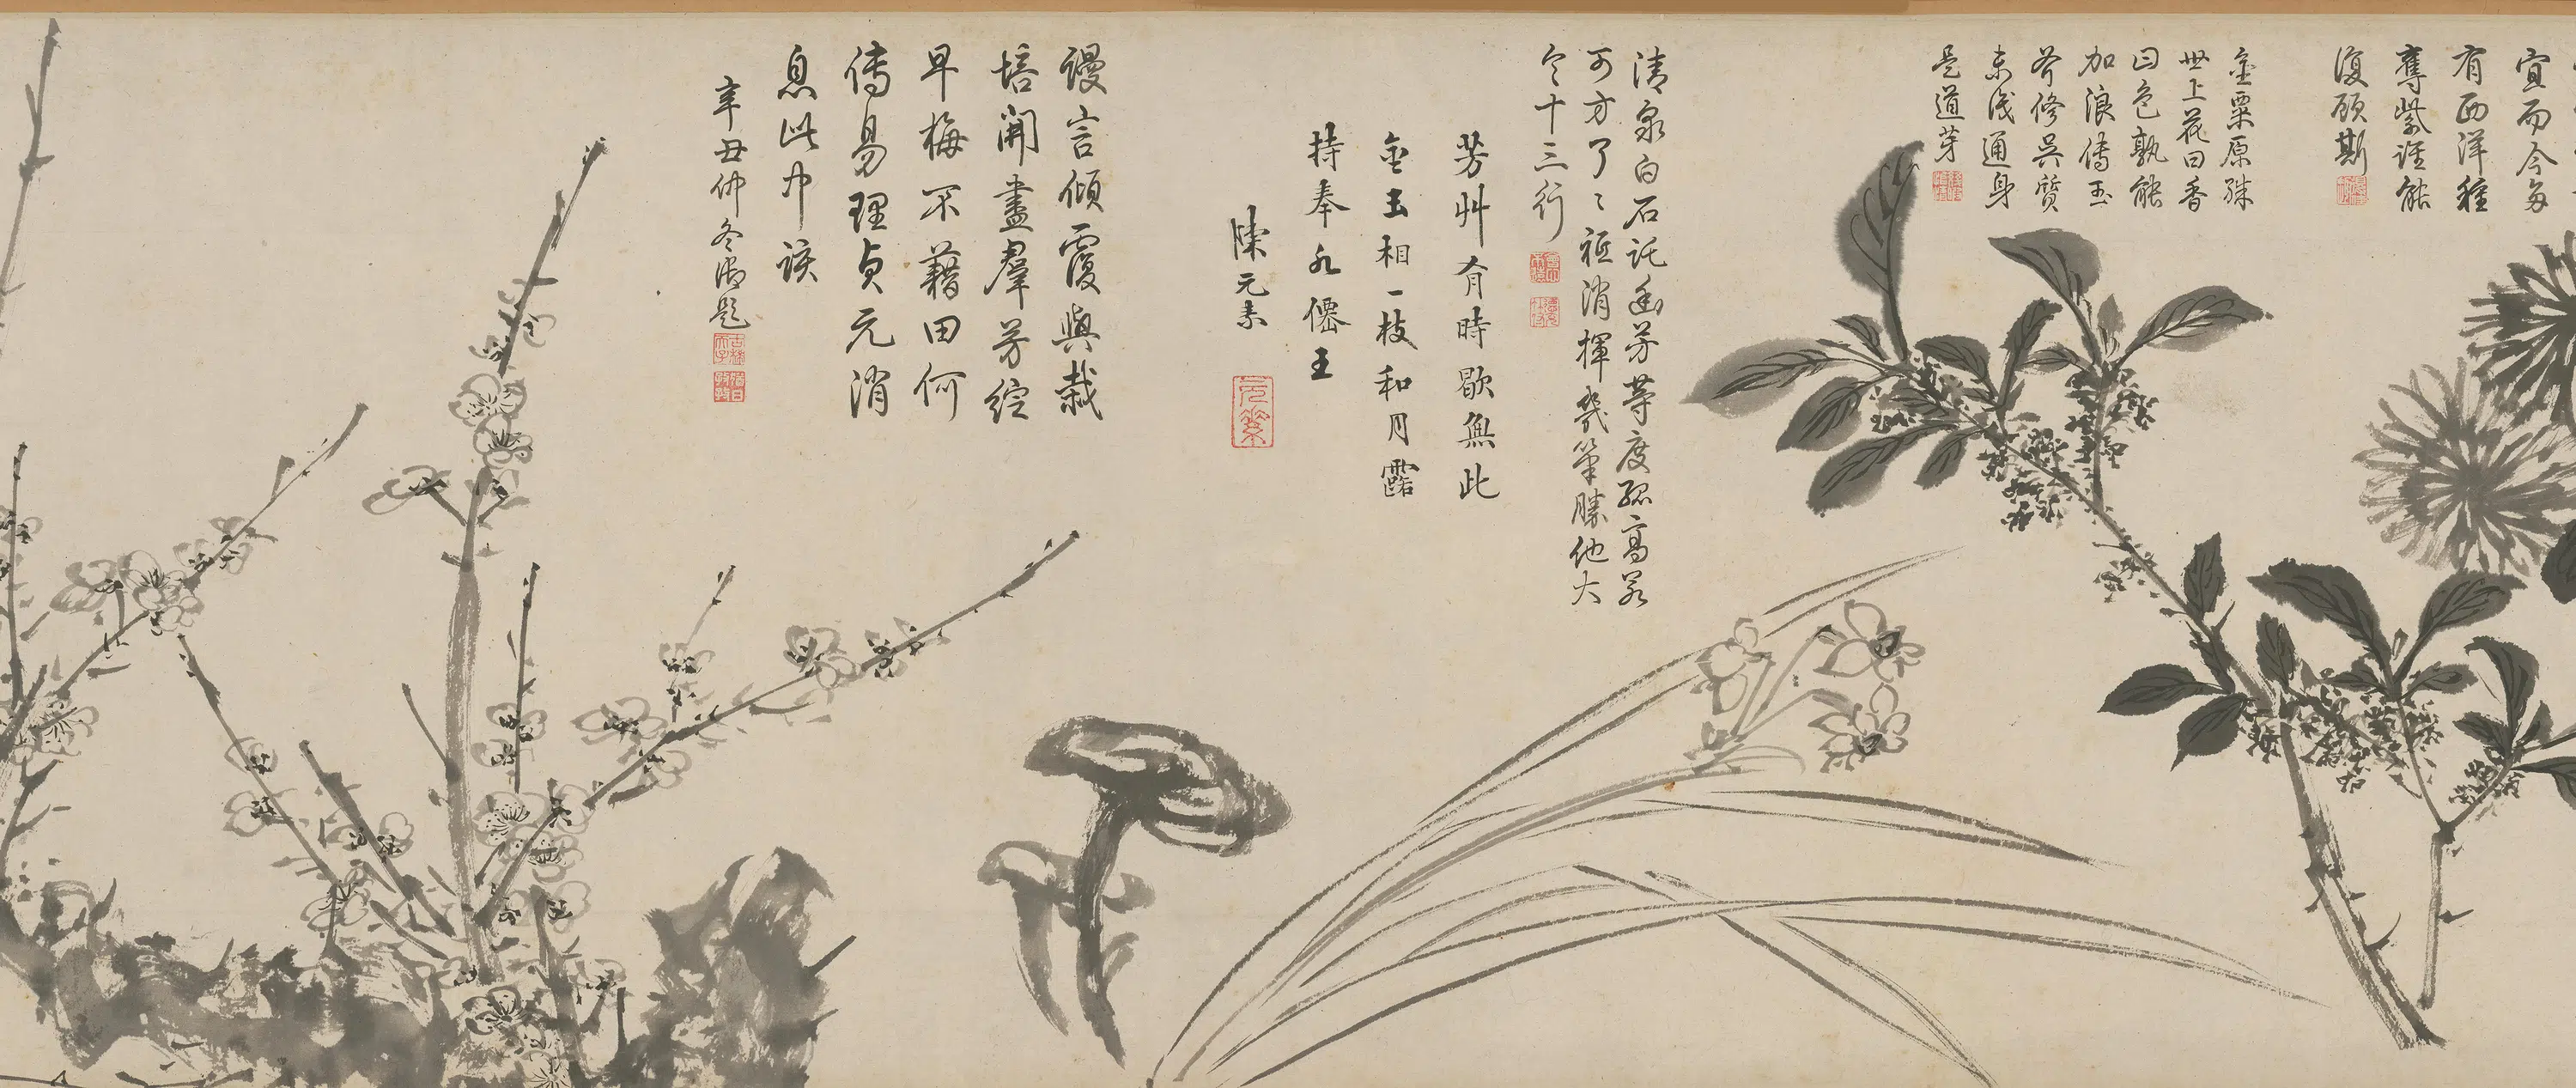 宜而今多
有西洋種
奪紫誰能
復顧斯
金粟原殊
世上花曰香
曰色孰能
加浪傳玉
斧修吳質
未淺通身
是道芽
清泉白石託幽芬萼度孤高若
可方了〻祗消揮幾筆勝他大
令十三行
芳艸有時歇無此
金玉相一枝和月露
持奉水僊王
陳元素
謾言傾覆與栽
培開盡羣芳綻
早梅不藉田何
傳易理貞元消
息此中該
辛丑仲冬御題
元素